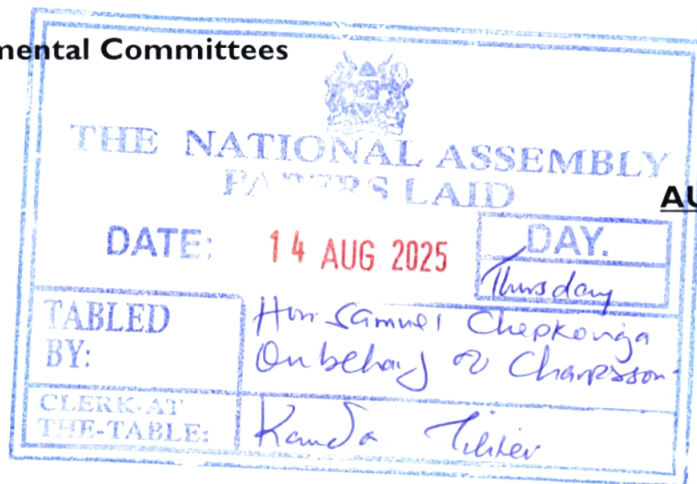 mental Committees
THE NATIONAL ASSEMBLY
PAPERS LAID
AU
DATE: 14 AUG 2025
DAY.
Thursday
TABLED
BY:
Hon Samuel Chepkonga
On behalf of Chairperson
CLERK-AT
THE-TABLE: